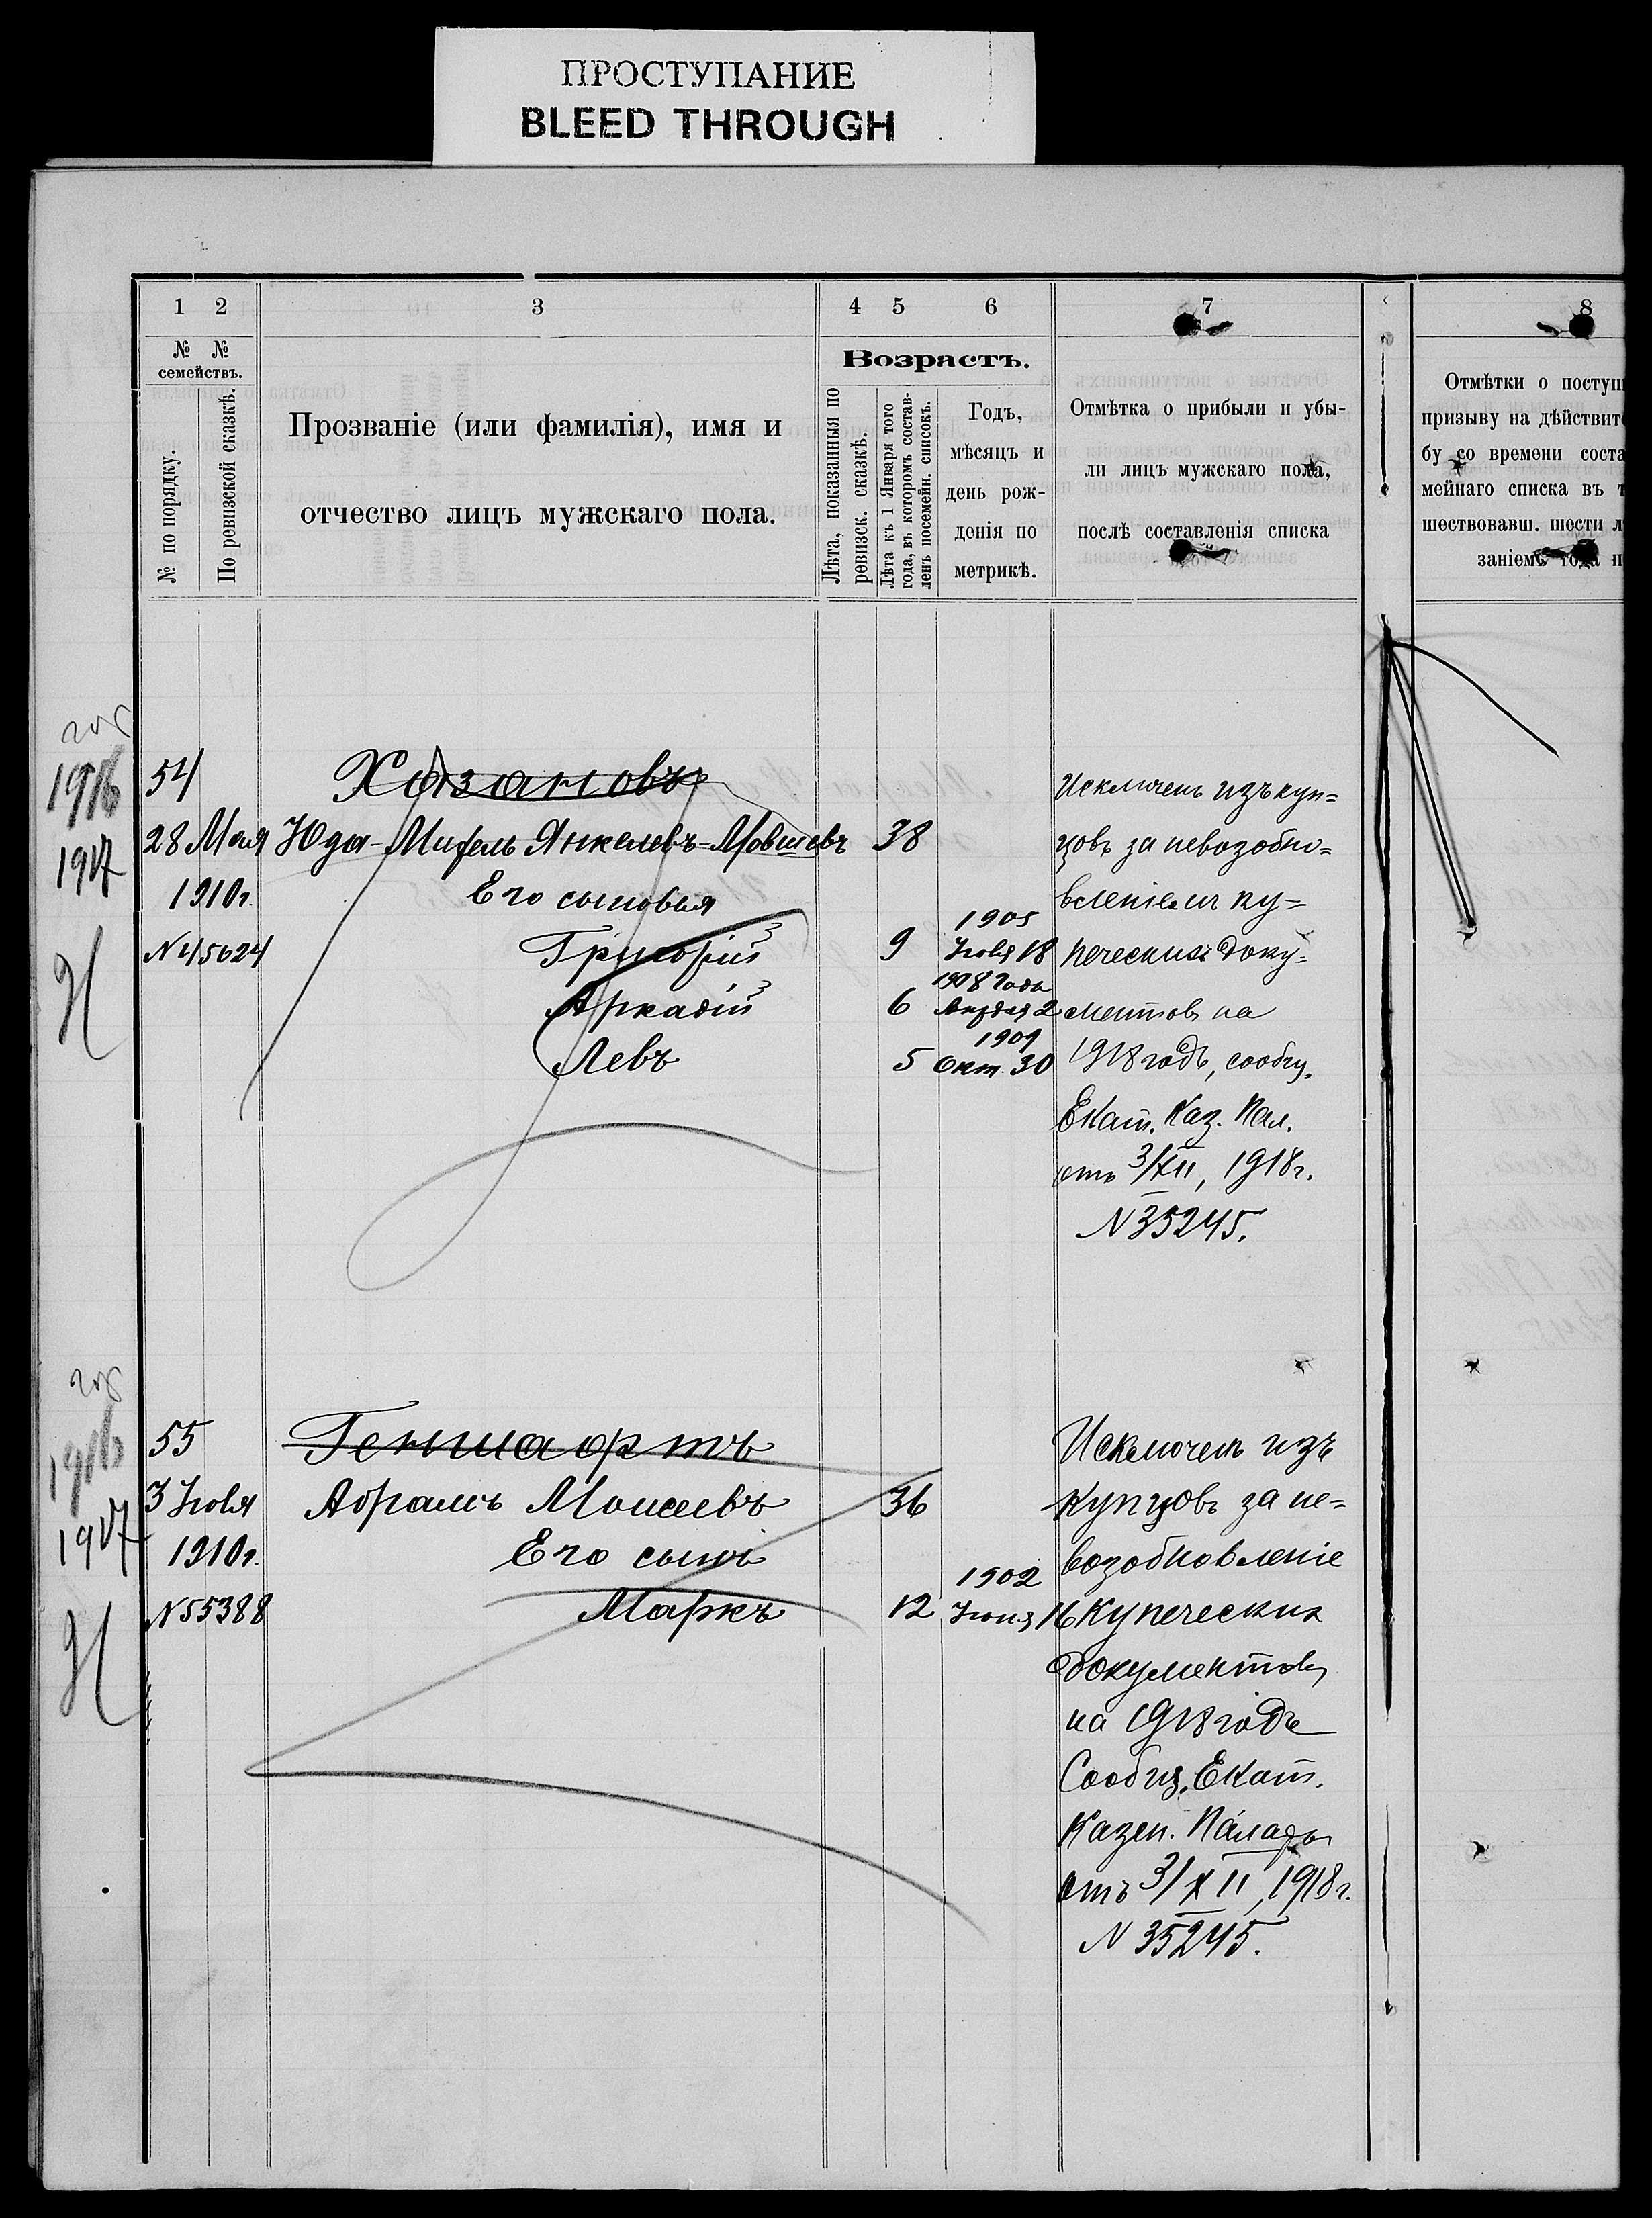 ПРОСТУПАНИЕ
BLEED THROUGH
1 2 3 4 5 6 7 8
№ № семействъ.
№ по порядку.
По ревизской сказкѣ.
Прозваніе (или фамилія), имя и
отчество лицъ мужскаго пола.
Возрастъ.
Лѣта, показанныя по
ревизск. сказкѣ.
Лѣта къ 1 Января того
года, въ которомъ состав-
ленъ посемейн. списокъ.
Годъ,
мѣсяцъ и
день рож-
денія по
метрикѣ.
Отмѣтка о прибыли и убы-
ли лицъ мужскаго пола,
послѣ составленія списка
Отмѣтки о поступ
призыву на дѣйствит
бу со времени соста
мейнаго списка въ т
шествовавш. шести л
заніемъ года п
1916
1917
54
28 Мая
1910г.
N 45624
Хазановъ
Юда-Михель Янкелевъ-Мовшевъ 38
Его сыновья
Григорій 9 1905 Іюля 18
Аркадій 6 1908 года 2
Левъ 5 1909 Окт. 30
Исключенъ изъ куп=
цовъ за невозобно=
вленіемъ ку=
печескихъ доку=
ментовъ на
1918 годъ, сообщ.
Екат. Каз. Пал.
отъ 3/XII, 1918г.
N 35245.
1916
1917
55
3 Іюля
1910г.
N 55388
Геншафтъ
Абрамъ Моисеевъ 36
Его сынъ
Маркъ 12 1902 Іюня 16
Исключенъ изъ
купцовъ за не=
возобновленіе
купеческих
документовъ
на 1918 годъ
Сообщ. Екат.
Казен. Палаты
отъ 3/XII, 1918г.
N 35245.